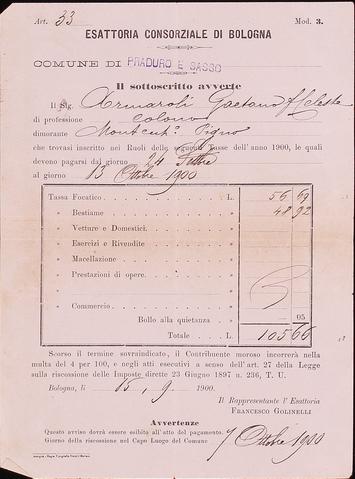 Art. 33 Mod. 3.
ESATTORIA CONSORZIALE DI BOLOGNA
COMUNE DI PRADURO E SASSO
Il sottoscritto avverte
Il Sig. Armaroli Gaetano f Celeste
di professione colono
dimorante Pigno
che trovasi inscritto nei Ruoli delle seguenti Tasse dell'anno 1900, le quali
devono pagarsi dal giorno 24 Settbre
al giorno 13 Ottobre 1900
Tassa Focatico L. 56 69
» Bestiame » 48 92
» Vetture e Domestici »
» Esercizi e Rivendite »
» Macellazione »
» Prestazioni di opere »
» »
» Commercio »
Bollo alla quietanza » 05
Totale L. 105 66
Scorso il termine sovraindicato, il Contribuente moroso incorrerà nella
multa del 4 per 100, e negli atti esecutivi a senso dell'art. 27 della Legge
sulla riscossione delle Imposte dirette 23 Giugno 1897 n. 236, T. U.
Bologna, li 15, 9 1900.
Il Rappresentante l'Esattoria
FRANCESCO GOLINELLI
Avvertenze
Questo avviso dovrà essere esibito all'atto del pagamento.
Giorno della riscossione nel Capo Luogo del Comune 7 Ottobre 1900